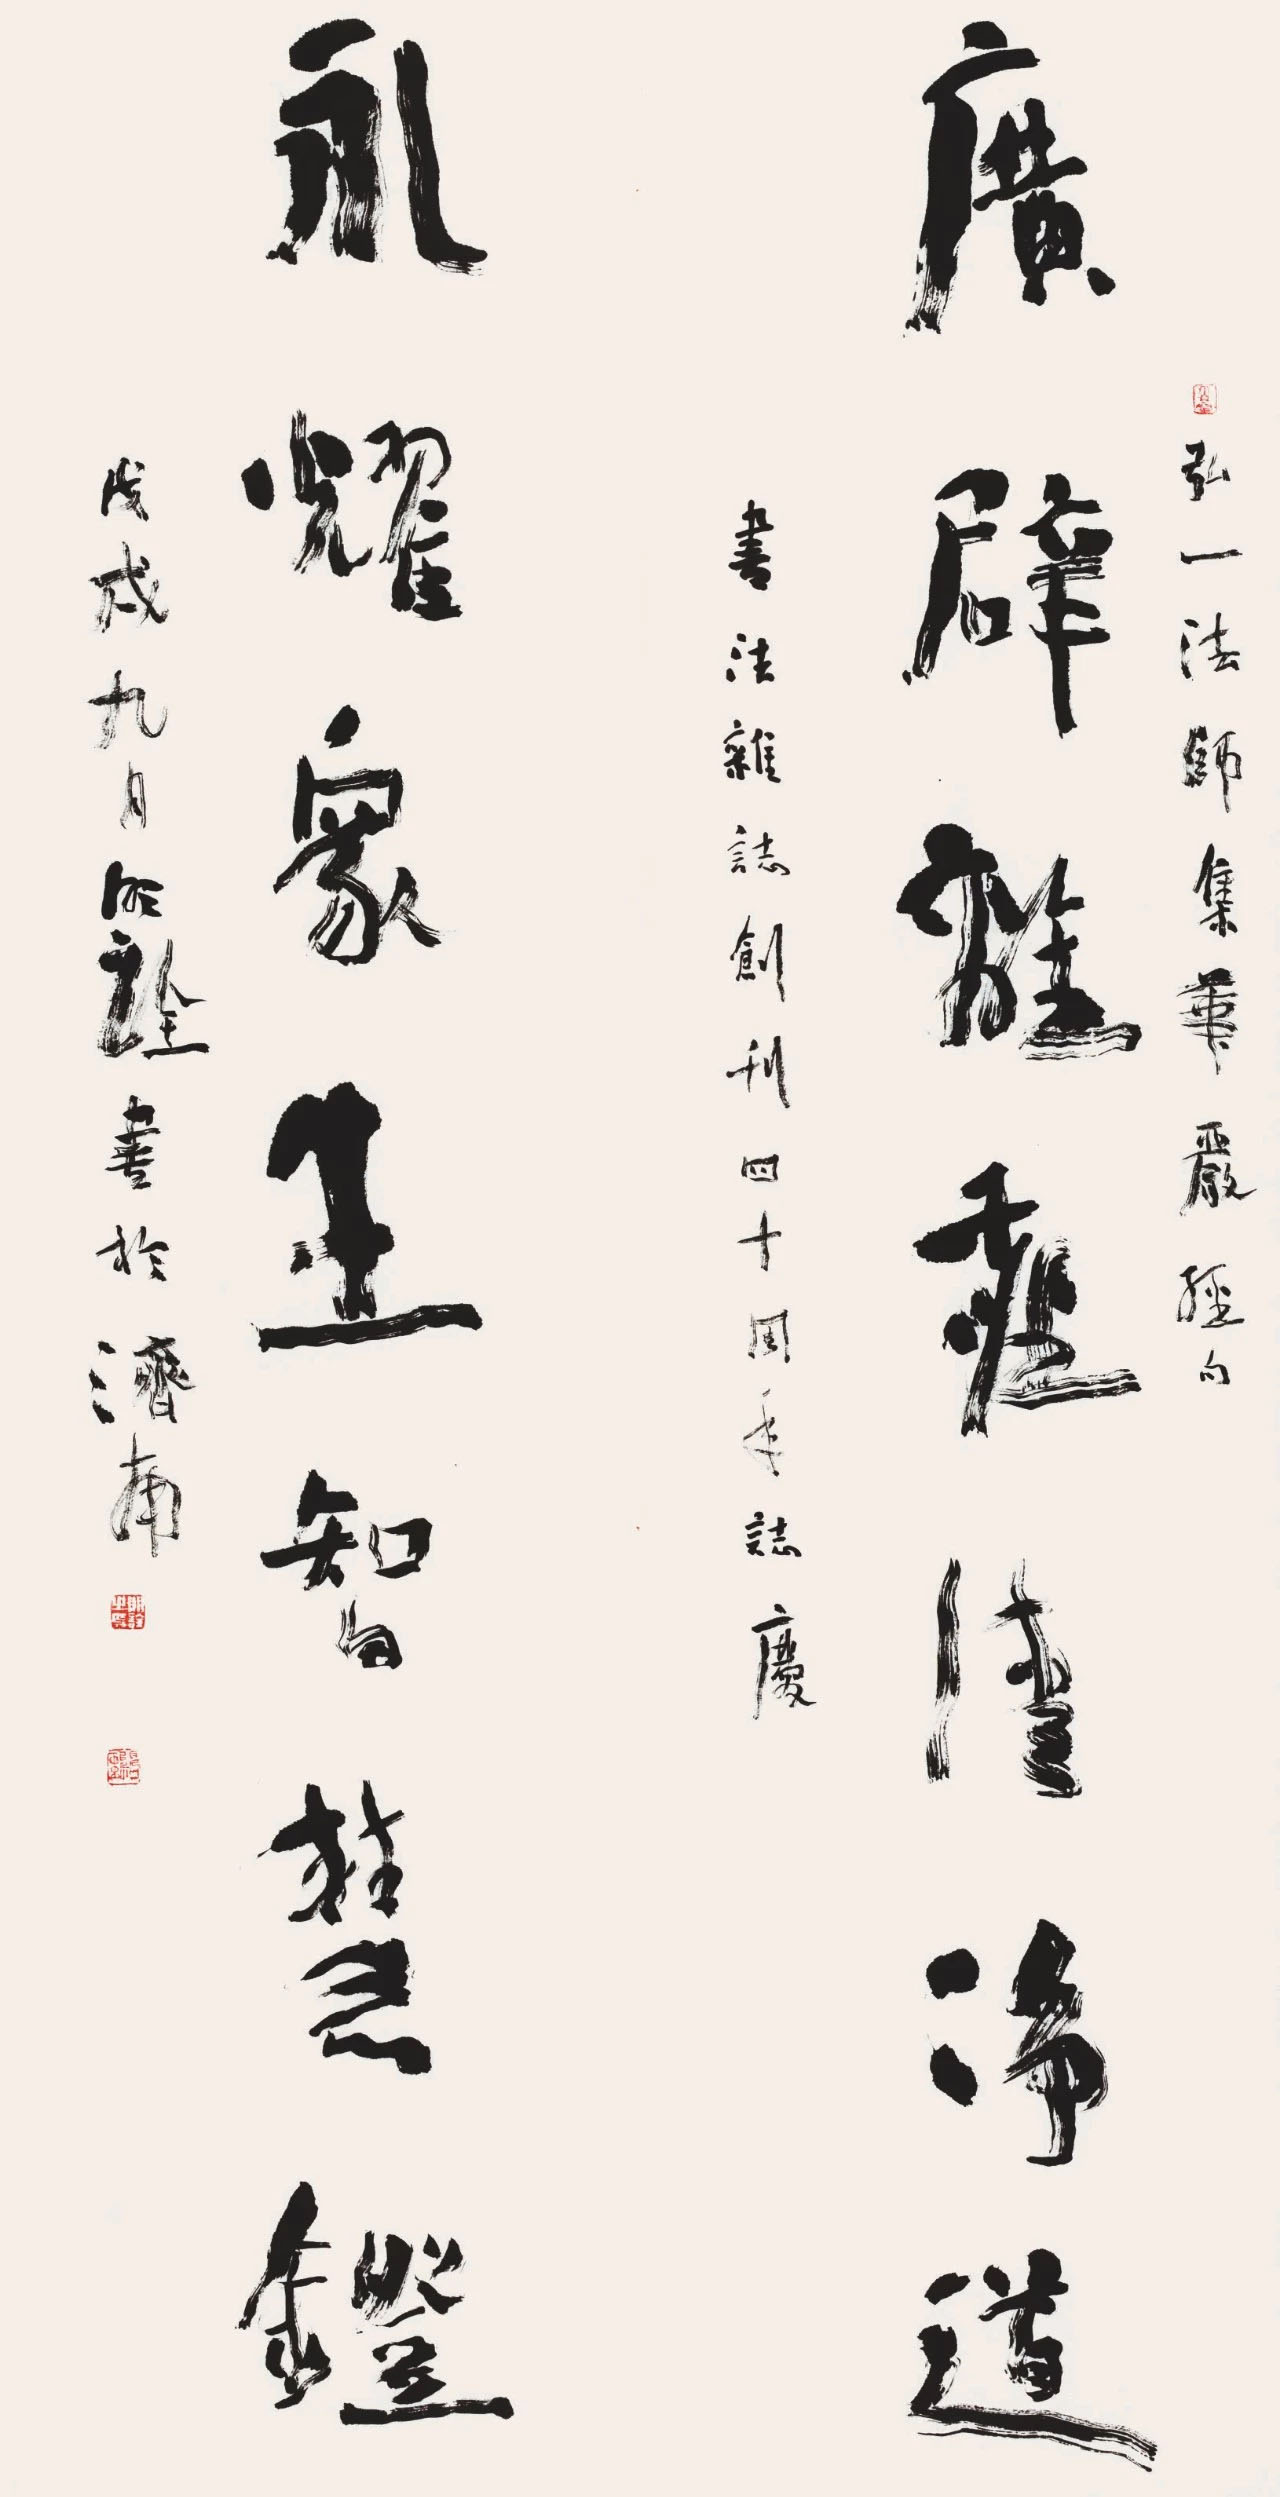 廣辟離清淨道
弘一法師集華嚴經句
書法雜誌創刊四十周年誌慶
永耀眾生智慧鐙
戊戌九月明詮書於濟南